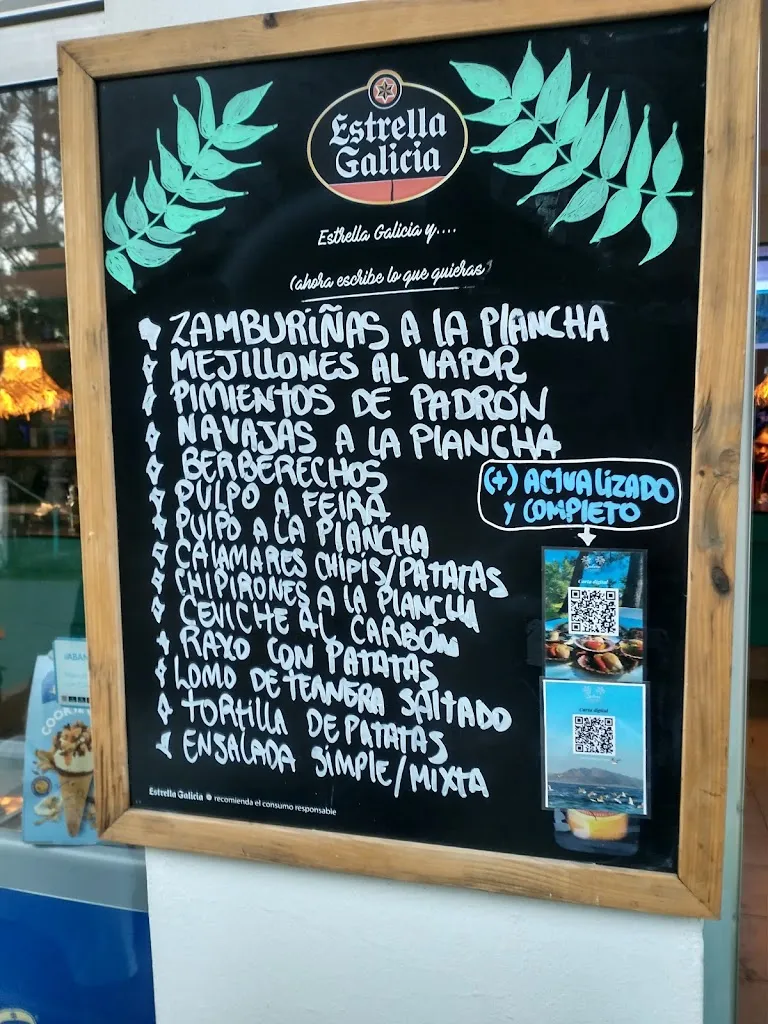 Estrella
Galicia
Estrella Galicia y....
(ahora escribe lo que quieras)
ZAMBURIÑAS A LA PLANCHA
MEJILLONES AL VAPOR
PIMIENTOS DE PADRÓN
NAVAJAS A LA PLANCHA
BERBERECHOS
PULPO A FEIRA
PULPO A LA PLANCHA
CALAMARES CHIPIS/PATATAS
CHIPIRONES A LA PLANCHA
CEVICHE AL CARBÓN
RAXO CON PATATAS
LOMO DE TERNERA SALTADO
TORTILLA DE PATATAS
ENSALADA SIMPLE/MIXTA
(+) ACTUALIZADO
Y COMPLETO
Carta digital
Carta digital
Estrella Galicia recomienda el consumo responsable